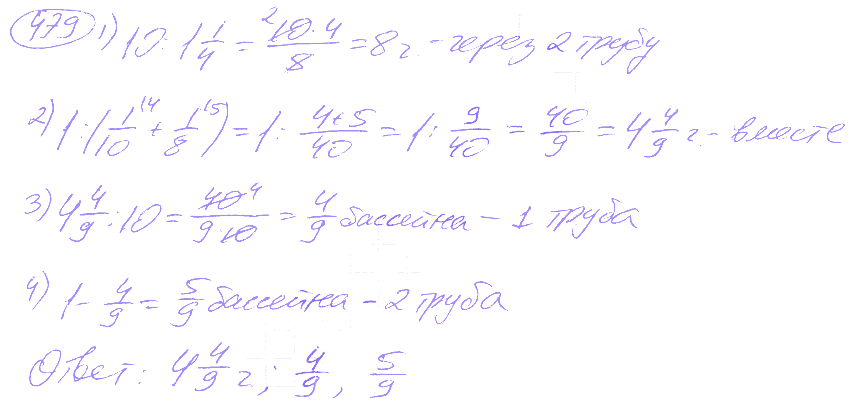 479 1) 10 : 1 1/4 = 10·4/8 = 8 ч. - через 2 трубу
2) 1 : (1/10 + 1/8) = 1 : 4+5/40 = 1 : 9/40 = 40/9 = 4 4/9 ч. - вместе
3) 4 4/9 : 10 = 40/9·10 = 4/9 бассейна - 1 труба
4) 1 - 4/9 = 5/9 бассейна - 2 труба
Ответ: 4 4/9 ч; 4/9, 5/9